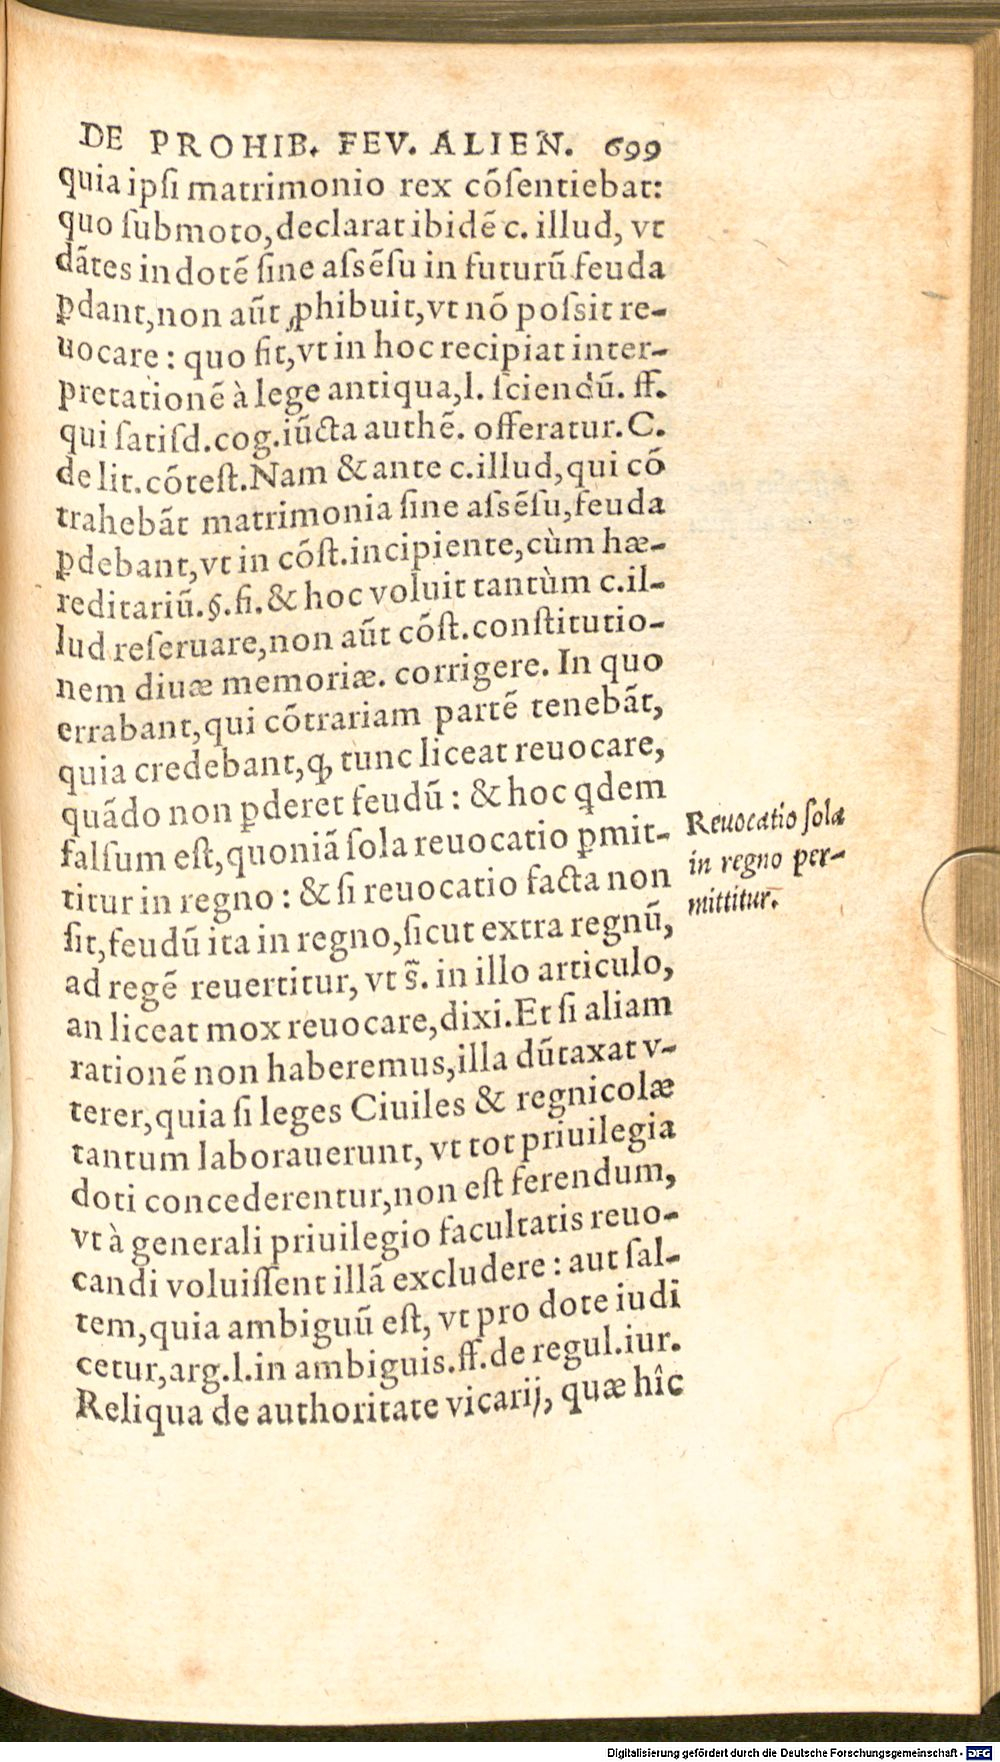 DE PROHIB. FEV. ALIEN. 699
quia ipſi matrimonio rex cõſentiebat:
quo ſubmoto, declarat ibidẽ c. illud, vt
dãtes in dotẽ ſine aſsẽſu in futurũ feuda
ꝑdant, non aũt ꝓhibuit, vt nõ poſsit re-
uocare: quo fit, vt in hoc recipiat inter-
pretationẽ à lege antiqua, l. ſciendũ. ff.
qui ſatiſd. cog. iũcta authẽ. offeratur. C.
de lit. cõteſt. Nam & ante c. illud, qui cõ
trahebãt matrimonia ſine aſsẽſu, feuda
ꝑdebant, vt in cõſt. incipiente, cùm hæ-
reditariũ. §. fi. & hoc voluit tantùm c. il-
lud reſeruare, non aũt cõſt. conſtitutio-
nem diuæ memoriæ. corrigere. In quo
errabant, qui cõtrariam partẽ tenebãt,
quia credebant, ꝙ tunc liceat reuocare,
quãdo non ꝑderet feudũ: & hoc qdem
falſum eſt, quoniã ſola reuocatio ꝑmit-
titur in regno: & ſi reuocatio facta non
ſit, feudũ ita in regno, ſicut extra regnũ,
ad regẽ reuertitur, vt s̃. in illo articulo,
an liceat mox reuocare, dixi. Et ſi aliam
rationẽ non haberemus, illa dũtaxat v-
terer, quia ſi leges Ciuiles & regnicolæ
tantum laborauerunt, vt tot priuilegia
doti concederentur, non eſt ferendum,
vt à generali priuilegio facultatis reuo-
candi voluiſſent illã excludere: aut ſal-
tem, quia ambiguũ eſt, vt pro dote iudi
cetur, arg. l. in ambiguis. ff. de regul. iur.
Reliqua de authoritate vicarij, quæ hîc
Reuocatio ſola
in regno per-
mittitur.
Digitalisierung gefördert durch die Deutsche Forschungsgemeinschaft - DFG